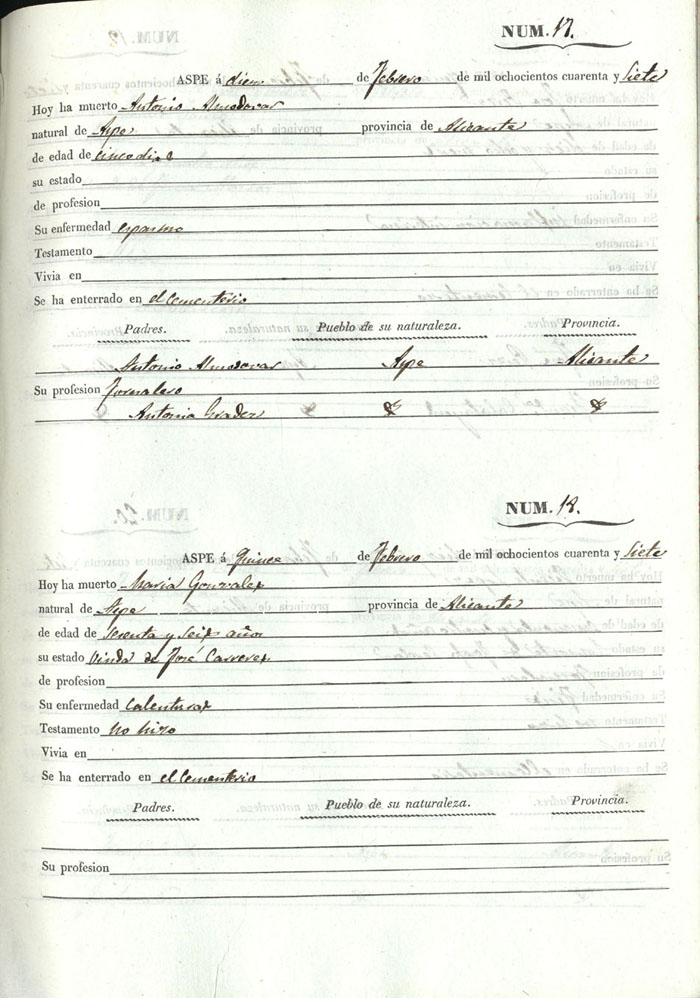 NUM. 17.
ASPE á diez de Febrero de mil ochocientos cuarenta y siete
Hoy ha muerto Antonio Almodovar
natural de Aspe provincia de Alicante
de edad de cinco dias
su estado
de profesion
Su enfermedad espasmo
Testamento
Vivia en
Se ha enterrado en el Cementerio
Padres. Pueblo de su naturaleza. Provincia.
Antonio Almodovar Aspe Alicante
Su profesion Jornalero
Antonia
NUM. 18.
ASPE á quince de Febrero de mil ochocientos cuarenta y siete
Hoy ha muerto Maria Gonzalez
natural de Aspe provincia de Alicante
de edad de sesenta y seis años
su estado Viuda de José Carreres
de profesion
Su enfermedad Calenturas
Testamento no hizo
Vivia en
Se ha enterrado en el Cementerio
Padres. Pueblo de su naturaleza. Provincia.
Su profesion